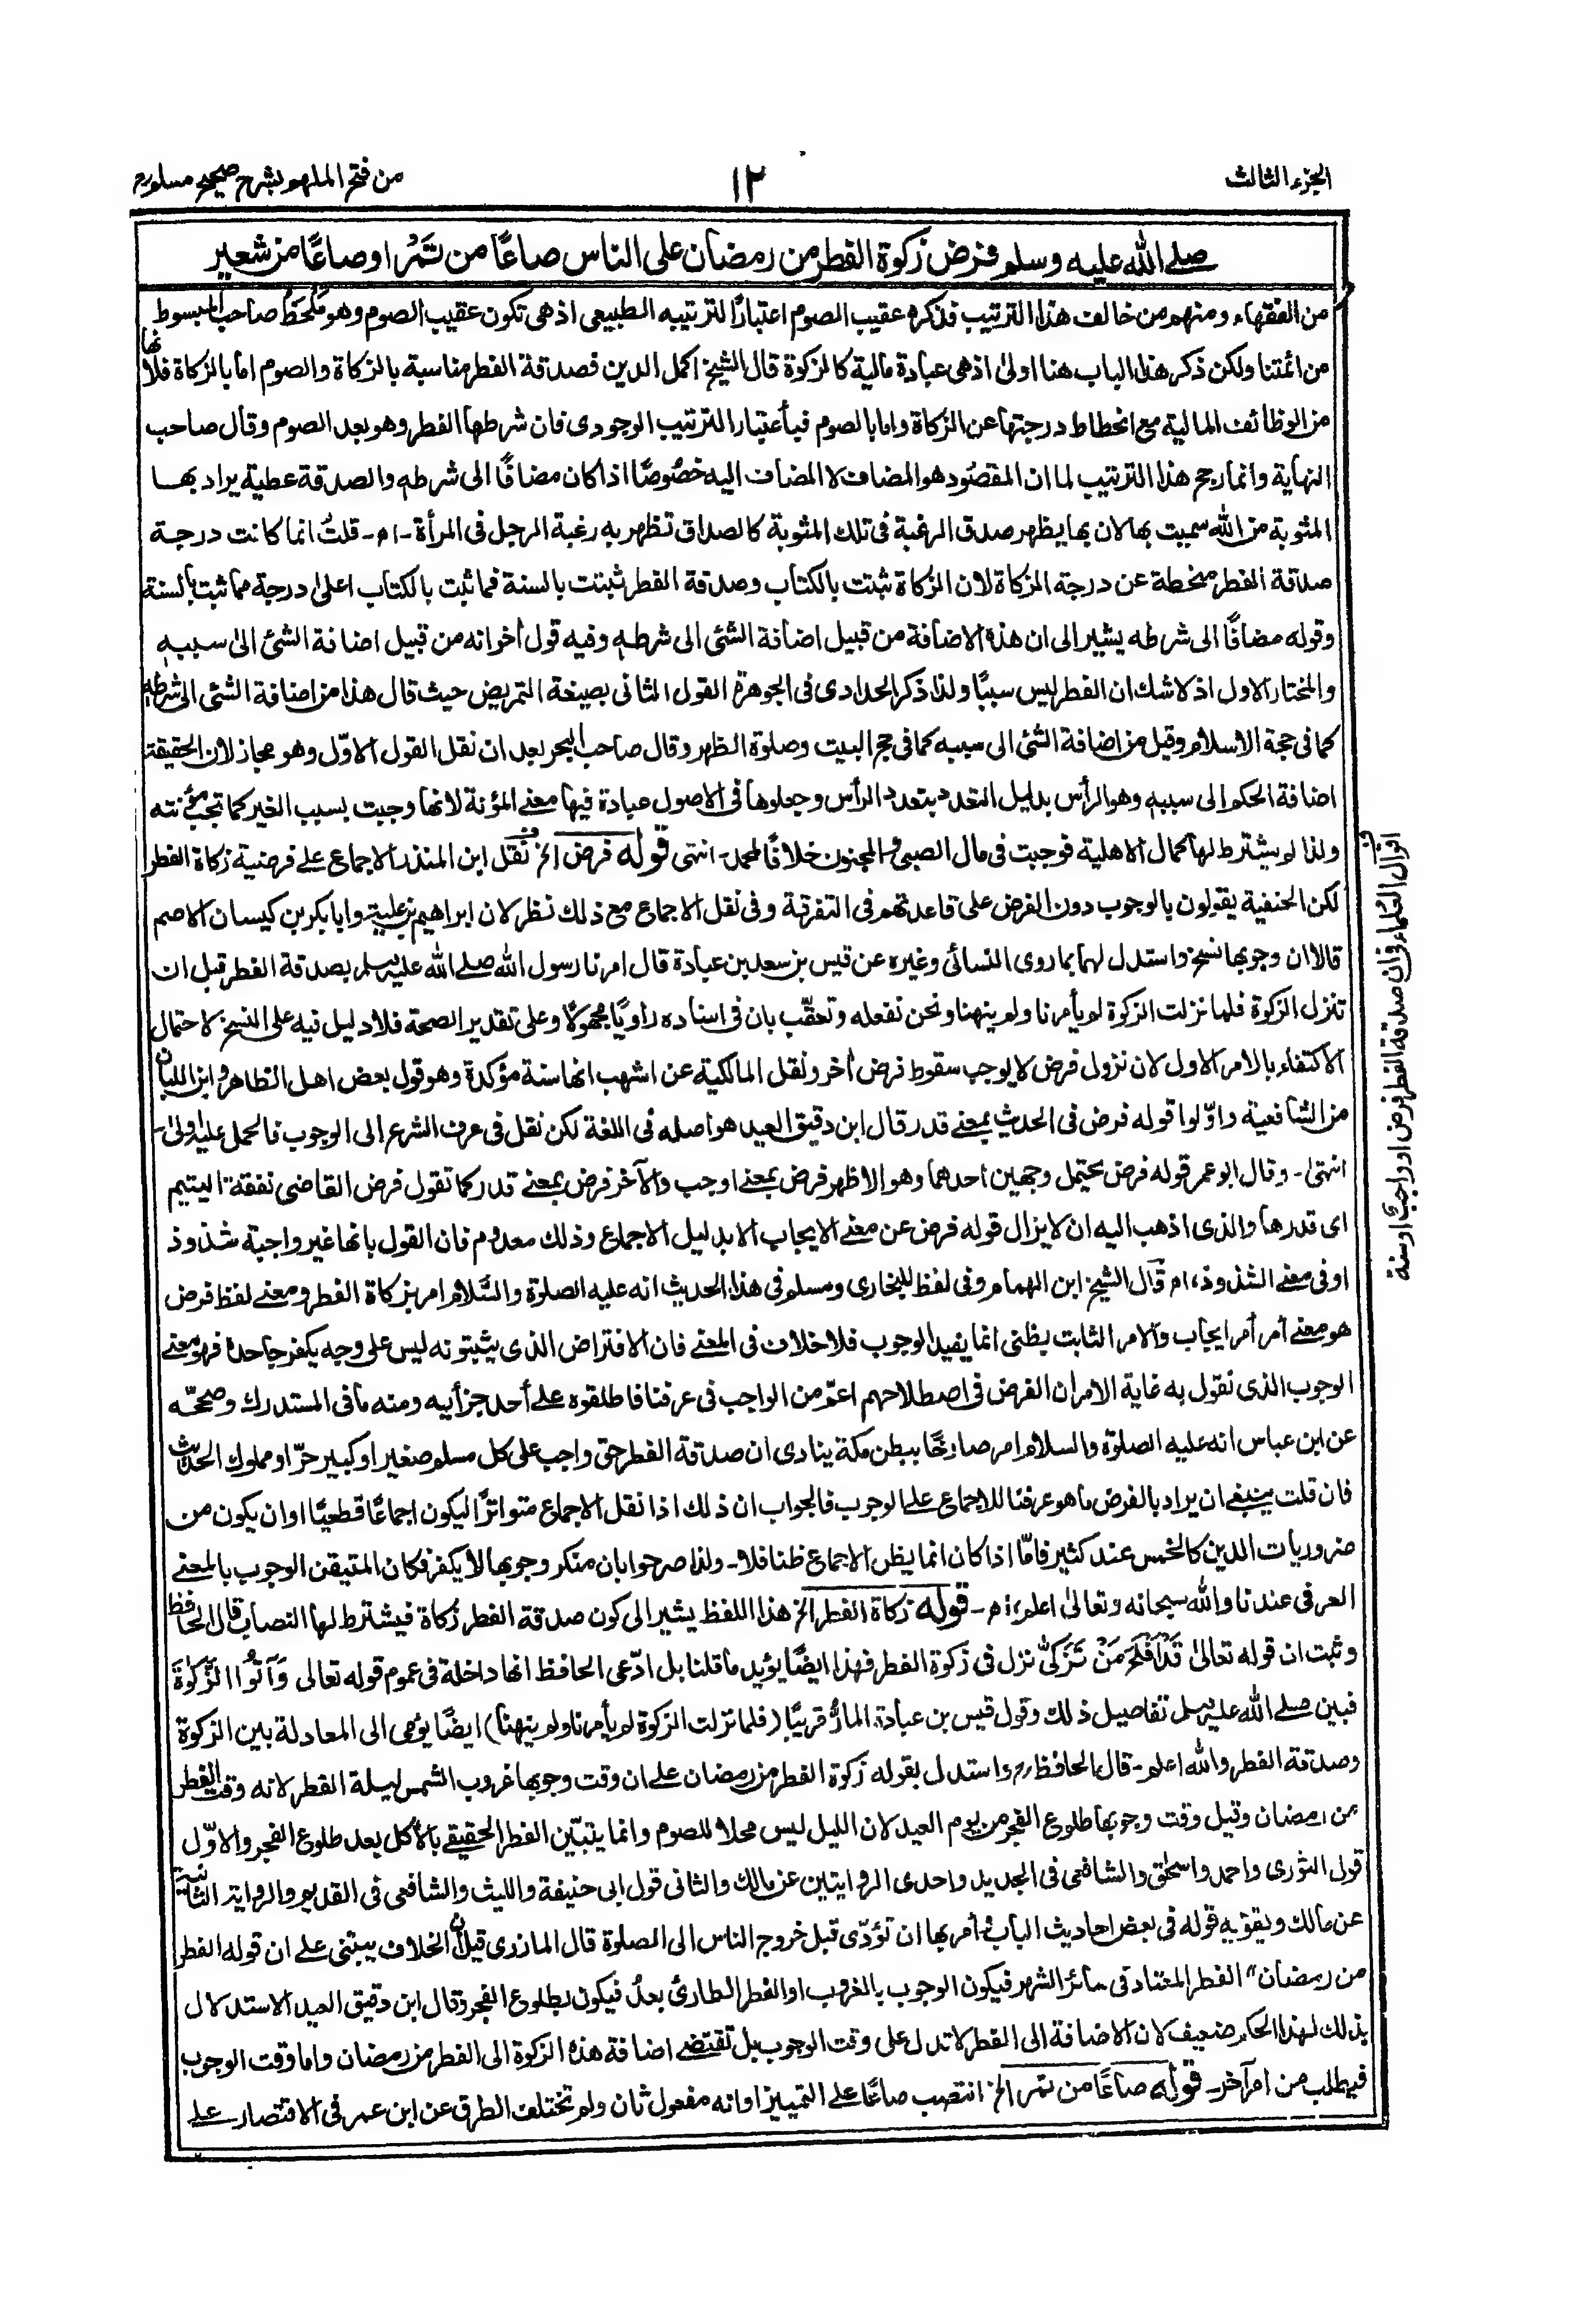 الجزء الثالث
١٢
من فتح الملهم بشرح صحيح مسلم
صلے الله عليه وسلم فرض زكوة الفطر من رمضان على الناس صاعًا من تَمْر اوصاعًا من شعير
من الفقهاء ومنهم من خالف هذا الترتيب فذكره عقيب الصوم اعتبارًا لترتيبه الطبيعى اذ هى تكون عقيب الصوم وهو مَلْحَظُ صاحب المبسوط
من ائمتنا ولكن ذكر هذا الباب هنا اولى اذ هى عبادة مالية كالزكوة قال الشيخ اكمل الدين فصدقة الفطر مناسبة بالزكاة والصوم اما بالزكاة فلانها
من الوظائف المالية مع انحطاط درجتها عن الزكاة واما بالصوم فبأعتبار الترتيب الوجودى فان شرطها الفطر وهو بعد الصوم وقال صاحب
النهاية وانما رجح هذا الترتيب لما ان المقصُود هو المضاف لا المضاف اليه خصُوصًا اذا كان مضافًا الى شرطه والصدقة عطية يراد بها
المثوبة من الله سميت بها لان بها يظهر صدق الرغبة فى تلك المثوبة كالصداق تظهر به رغبة الرجل فى المرأة - اه - قلتُ انما كانت درجة
صدقة الفطر منحطة عن درجة الزكاة لان الزكاة ثبتت بالكتاب وصدقة الفطر ثبتت بالسنة فما ثبت بالكتاب اعلىٰ درجة مما ثبت بالسنة
وقوله مضافًا الى شرطه يشير الى ان هذه الاضافة من قبيل اضافة الشئى الى شرطه وفيه قول أخر انه من قبيل اضافة الشئ الىٰ سببه
والمختار الاول اذ لا شك ان الفطر ليس سببًا ولذا ذكر الحدادى فى الجوهرة القول الثانى بصيغة التمريض حيث قال هذا من اضافة الشئى الى شرطه
كما فى حجة الاسلام وقيل من اضافة الشئى الى سببه كما فى حج البيت وصلوة الظهر وقال صاحب البحر بعد ان نقل القول الاوّل وهو مجاز لان الحقيقة
اضافة الحكم الى سببه وهو الرأس بدليل التعدد بتعدد الرأس وجعلوها فى الاصول عبادة فيها معنے المؤنة لانها وجبت بسبب الغير كما تجب مؤنته
ولذا لم يشترط لها كمال الاهلية فوجبت فى مال الصبى والمجنون خلافًا لمحمد - انتهى قوله فرض الخ نقل ابن المنذر الاجماع علے فرضية زكاة الفطر
لكن الحنفية يقولون بالوجوب دون الفرض على قاعدتهم فى التفرقة وفى نقل الاجماع مع ذلك نظر لان ابراهيم بن علية وابا بكر بن كيسان الاصم
قالا ان وجوبها نسخ واستدل لهما بما روى النسائى وغيره عن قيس بن سعد بن عبادة قال امرنا رسول الله صلے الله عليه وسلم بصدقة الفطر قبل ان
تنزل الزكوة فلما نزلت الزكوة لم يأمرنا ولم ينهنا ونحن نفعله وتعقّب بان فى اسناده راويًا مجهولًا وعلى تقدير الصحة فلا دليل فيه على النسخ لاحتمال
الاكتفاء بالامر الاول لان نزول فرض لا يوجب سقوط فرض أخر ونقل المالكية عن اشهب انها سنة مؤكدة وهو قول بعض اهل الظاهر وابن اللبان
من الشافعية واوّلوا قوله فرض فى الحديث بمعنے قدر قال ابن دقيق العيد هو اصله فى اللغة لكن نقل فى عرف الشرع الى الوجوب فالحمل عليه اولى -
انتهىٰ - وقال ابو عمر قوله فرض يحتمل وجهين احدهما وهو الاظهر فرض بمعنے اوجب والآخر فرض بمعنے قدر كما تقول فرض القاضى نفقة اليتيم
اى قدرها والذى اذهب اليه ان لا يزال قوله فرض عن معنے الايجاب الا بدليل الاجماع وذلك معدوم فان القول بانها غير واجبة شذوذ
او فى معنے الشذوذ، اه قال الشيخ ابن الهمام وفى لفظ للبخارى ومسلم فى هذا الحديث انه عليه الصلوة والسّلام امر بزكاة الفطر ومعنے لفظ فرض
هو معنے أمر أمر ايجاب والامر الثابت بظنى انما يفيد الوجوب فلا خلاف فى المعنے فان الافتراض الذى يثبتونه ليس على وجه يكفر جاحده فهو معنے
الوجوب الذى نقول به غاية الامر ان الفرض فى اصطلاحهم اعمّ من الواجب فى عرفنا فاطلقوه علے أحد جزأيه ومنه ما فى المستدرك وصححّه
عن ابن عباس انه عليه الصلوٰة والسلام امر صارخًا ببطن مكة ينادى ان صدقة الفطر حق واجب على كل مسلم صغير او كبير حرّ او مملوك الحديث
فان قلت ينبغے ان يراد بالفرض ما هو عرفنا للاجماع علے الوجوب فالجواب ان ذلك اذا نقل الاجماع متواترًا ليكون اجماعًا قطعيًا او ان يكون من
ضروريات الدين كالخمس عند كثير فامّا اذا كان انما يظن الاجماع ظنا فلا - ولذا صرحوا بان منكر وجوبها لا يكفر فكان المتيقن الوجوب بالمعنے
العرفى عندنا والله سبحانه وتعالىٰ اعلم، اه - قوله زكاة الفطر الخ هذا اللفظ يشير الى كون صدقة الفطر زكاة فيشترط لها النصاب قال الحافظ
وثبت ان قوله تعالىٰ قَدْ أَفْلَحَ مَنْ تَزَكّٰى نزل فى زكوة الفطر فهذا ايضًا يؤيد ما قلنا بل ادّعى الحافظ انها داخلة فى عموم قوله تعالى وَآتُوا الزَّكوٰةَ
فبين صلے الله عليه وسلم تفاصيل ذلك وقول قيس بن عبادة المارّ قريبًا (فلما نزلت الزكوة لم يأمرنا ولم ينهنا) ايضًا يؤمى الى المعادلة بين الزكوة
وصدقة الفطر والله اعلم - قال الحافظ رح واستدل بقوله زكوة الفطر من رمضان علے ان وقت وجوبها غروب الشمس ليلة الفطر لانه وقت الفطر
من رمضان وقيل وقت وجوبها طلوع الفجر من يوم العيد لان الليل ليس محلا للصوم وانما يتبيّن الفطر الحقيقے بالأكل بعد طلوع الفجر والاوّل
قول الثورى واحمد واسحٰق والشافعى فى الجديد واحدى الروايتين عن مالك والثانى قول ابى حنيفة والليث والشافعى فى القديم والرواية الثانية
عن مالك ويقويه قوله فى بعض احاديث الباب وأمر بها ان تؤدّى قبل خروج الناس الى الصلوة قال المازرى قيل ان الخلاف يبتنى علے ان قوله الفطر
من رمضان" الفطر المعتاد فى سائر الشهر فيكون الوجوب بالغروب او الفطر الطارئ بعدُ فيكون بطلوع الفجر وقال ابن دقيق العيد الاستدلال
بذلك لهذا الحكم ضعيف لان الاضافة الى الفطر لا تدل على وقت الوجوب بل تقتضے اضافة هذه الزكوة الى الفطر من رمضان واما وقت الوجوب
فيطلب من امر آخر - قوله صاعًا من تمر الخ انتصب صاعًا علے التمييز او انه مفعول ثان ولم تختلف الطرق عن ابن عمر فى الاقتصار علے
اقوال العلماء فى ان صدقة الفطر فرض او واجب او سنة